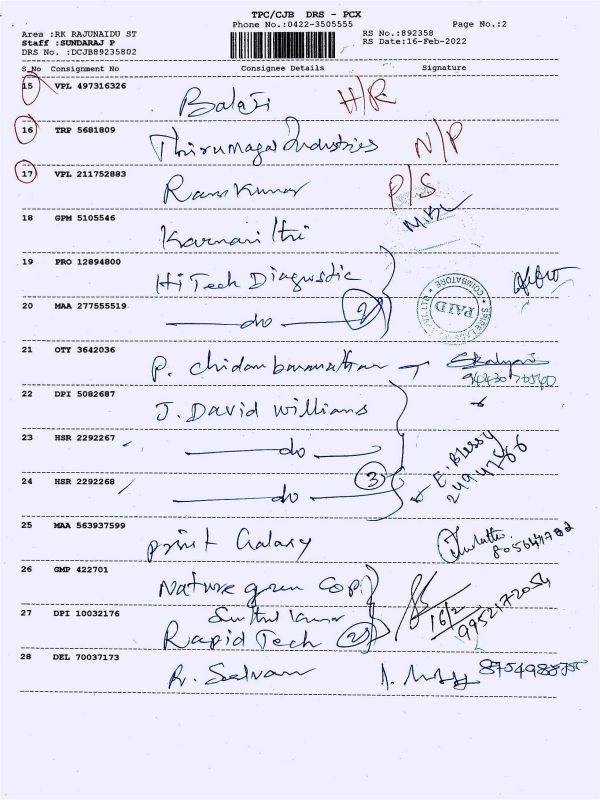 TPC/CJB DRS - PCX
Phone No.:0422-3505555 Page No.:2
Area :RK RAJUNAIDU ST RS No.:892358
Staff :SUNDARAJ P RS Date:16-Feb-2022
DRS No. :DCJB89235802
S.No Consignment No Consignee Details Signature
15 VPL 497316326 Balaji H/R
16 TRP 5681809 Thirumagal Industries N/P
17 VPL 211752883 Ram Kumar P/S
18 GPM 5105546
19 PRO 12894800 HiTech Diagnostic
20 MAA 277555519 do 2
PAID
COIMBATORE
21 OTY 3642036 P.
22 DPI 5082687 J. David Williams
23 HSR 2292267 do
24 HSR 2292268 do 3
E. Blessy
2494766
25 MAA 563937599 Print Galaxy
26 GMP 422701 Nature green
16/2
9952172054
27 DPI 10032176 Rapid Tech 2
28 DEL 70037173 R. Selvam